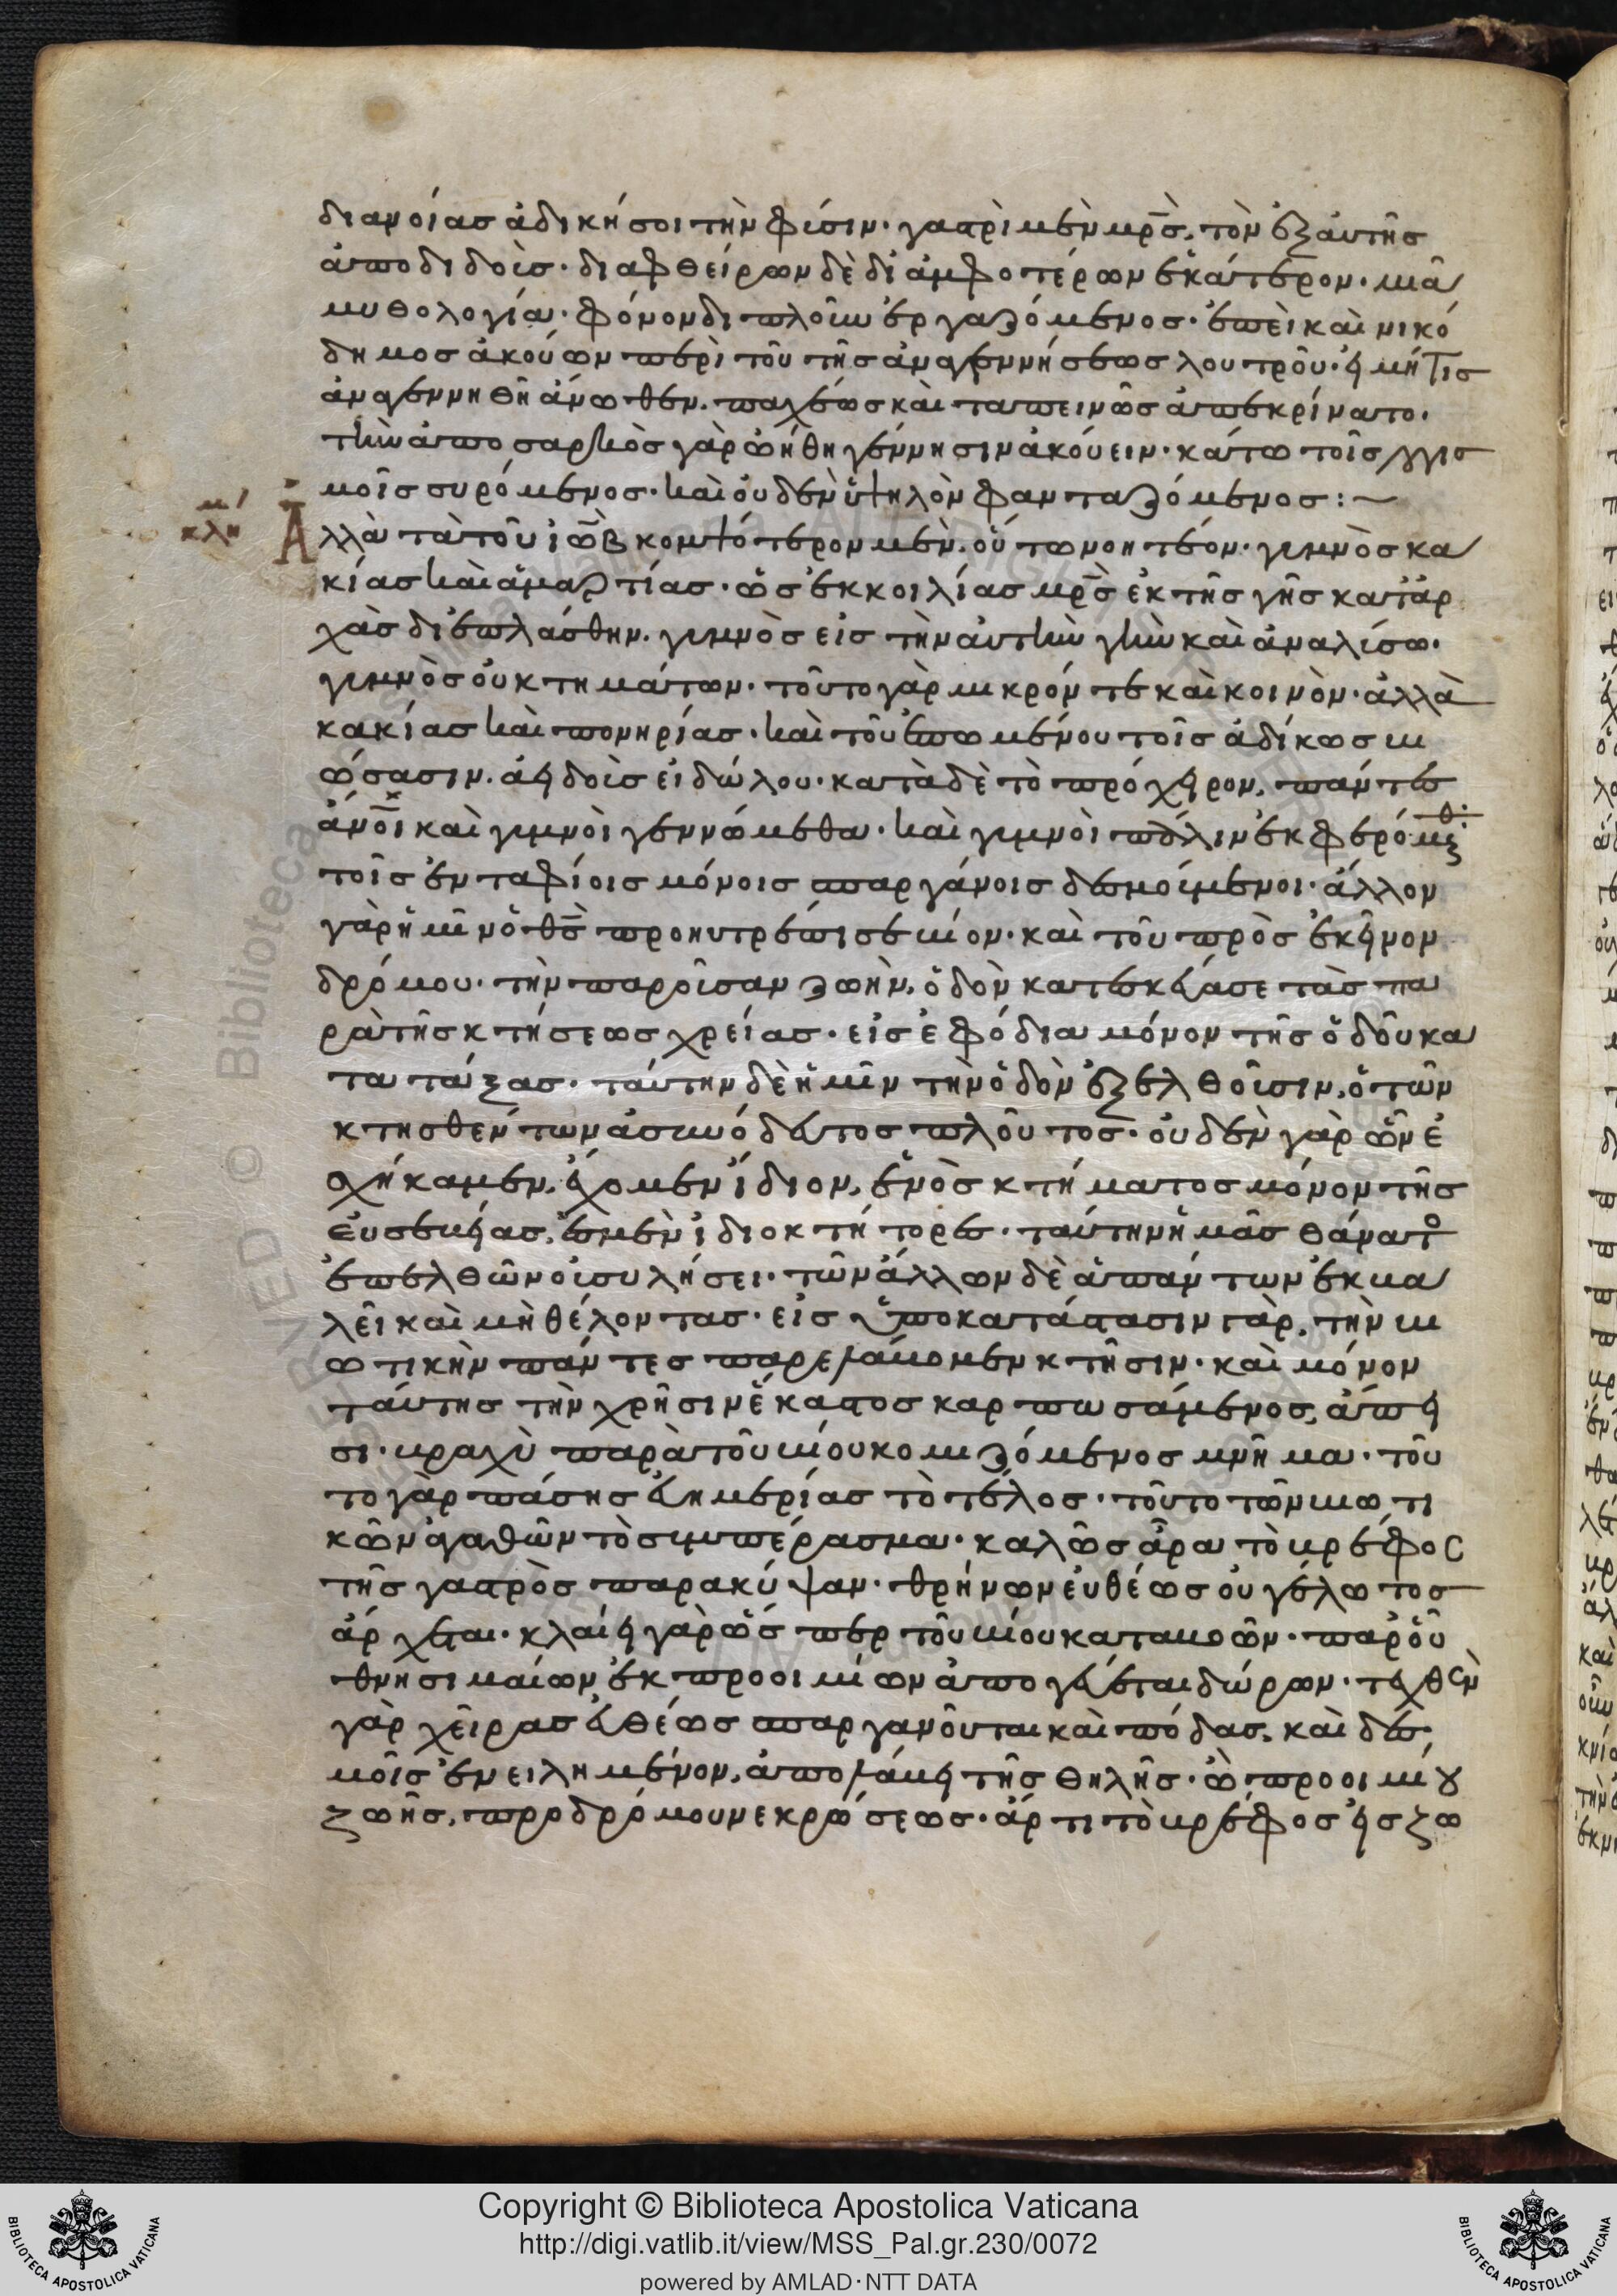 διανοίας ἀδικήσοι τὴν φύσιν· γαστρὶ μὲν μρ̅ς, τὸν ἐξ αὐτῆς
ἀποδιδοὺς· διαφθείρων δὲ δι ἀμφοτέρων ἑκάτερον· μιᾶ
μυθολογία· φόνον διπλοῦν ἐργαζόμενος· ἐπεὶ καὶ νικό
δημος ἀκούων περὶ τοῦ τῆς ἀναγεννήσεως λουτροῦ· εἰ μήτις
ἀναγεννηθῆ ἄνωθεν. παχέως καὶ ταπεινῶς ἀπεκρίνατο·
τὴν ἀπο σαρκὸς γὰρ ὠήθη γέννησιν ἀκούειν· κάτω τοῖς λογισ
μοῖς συρόμενος· καὶ οὐδὲν ὑψηλὸν φανταζόμενος :~
κλη
Ἀλλὰ τὰ τοῦ ἰὼβ κομψότερον μὲν. οὕτω νοητέον· γυμνὸς κα
κίας καὶ ἁμαρτίας· ὡς ἐκ κοιλίας μρ̅ς ἐκ τῆς γῆς κατ ἀρ
χὰς διεπλάσθην. γυμνὸς εἰς τὴν αὐτὴν γῆν καὶ ἀναλύσω.
γυμνὸς οὐ κτημάτων· τοῦτο γὰρ μικρόν τε καὶ κοινὸν· ἀλλὰ
κακίας καὶ πονηρίας· καὶ τοῦ ἑπομένου τοῖς ἀδίκως βι
ώσασιν. ἀειδοῦς εἰδώλου· κατὰ δὲ τὸ πρόχειρον, πάντες
ἀν̅οι καὶ γυμνοὶ γεννώμεθα· καὶ γυμνοὶ πάλιν ἐκφερόμεθ·
τοῖς ἐνταφίοις μόνοις σπαργάνοις δεσμούμενοι· ἄλλον
γὰρ ἡμῖν ὁ θ̅ς προηυτρέπισε βίον· καὶ τοῦ πρὸς ἐκεῖνον
δρόμου· τὴν παροῦσαν ζωὴν, ὁδὸν κατεσκεύασε τὰς πα
ρὰ τῆς κτήσεως χρείας· εἰς ἐφόδια μόνον τῆς ὁδοῦ κα
τατάξας· ταύτην δὲ ἡμῖν τὴν ὁδὸν ἐξελθοῦσιν, ὁ τῶν
κτησθέντων ἀσυνόδευτος πλοῦτος· οὐδὲν γὰρ ὧν ἐ
σχήκαμεν, ἔχομεν ἴδιον, ἑνὸς κτήματος μόνον τῆς
εὐσεβείας, ἐσμὲν ἰδιοκτήτορες· ταύτην ἡμᾶς θάνατο
ἐπελθὼν οὐ συλήσει· τῶν ἄλλων δὲ ἁπάντων ἐκβα
λεῖ καὶ μὴ θέλοντας· εἰς ὑποκατάστασιν γὰρ, τὴν βι
ωτικὴν πάντες παρελάβομεν κτῆσιν· καὶ μόνον
ταύτης τὴν χρῆσιν ἕκαστος καρπωσάμενος, ἄπει
σι· βραχὺ παρὰ τοῦ βίου κομιζόμενος μνῆμα· τοῦ
το γὰρ πάσης εὐημερίας τὸ τέλος· τοῦτο τῶν βιωτι
κῶν ἀγαθῶν τὸ συμπέρασμα· καλῶς ἄρα τὸ βρέφος
τῆς γαστρὸς παρακύψαν· θρήνων εὐθέως οὐ γέλωτος
ἄρχεται· κλαίει γὰρ ὥσπερ τοῦ βίου καταβοῶν· παρ οὗ
θνησιμαίων ἐκ προοιμίων ἀπογεύεται δώρων· τεχθὲν
γὰρ χεῖρας εὐθέως σπαργανοῦται καὶ πόδας, καὶ δεσ
μοῖς ἐνειλημένον, ἀπολαύει τῆς θηλῆς· ὢ προοιμίου
ζωῆς, προδρόμου νεκρώσεως· ἄρτι τὸ βρέφος εἰς ζω